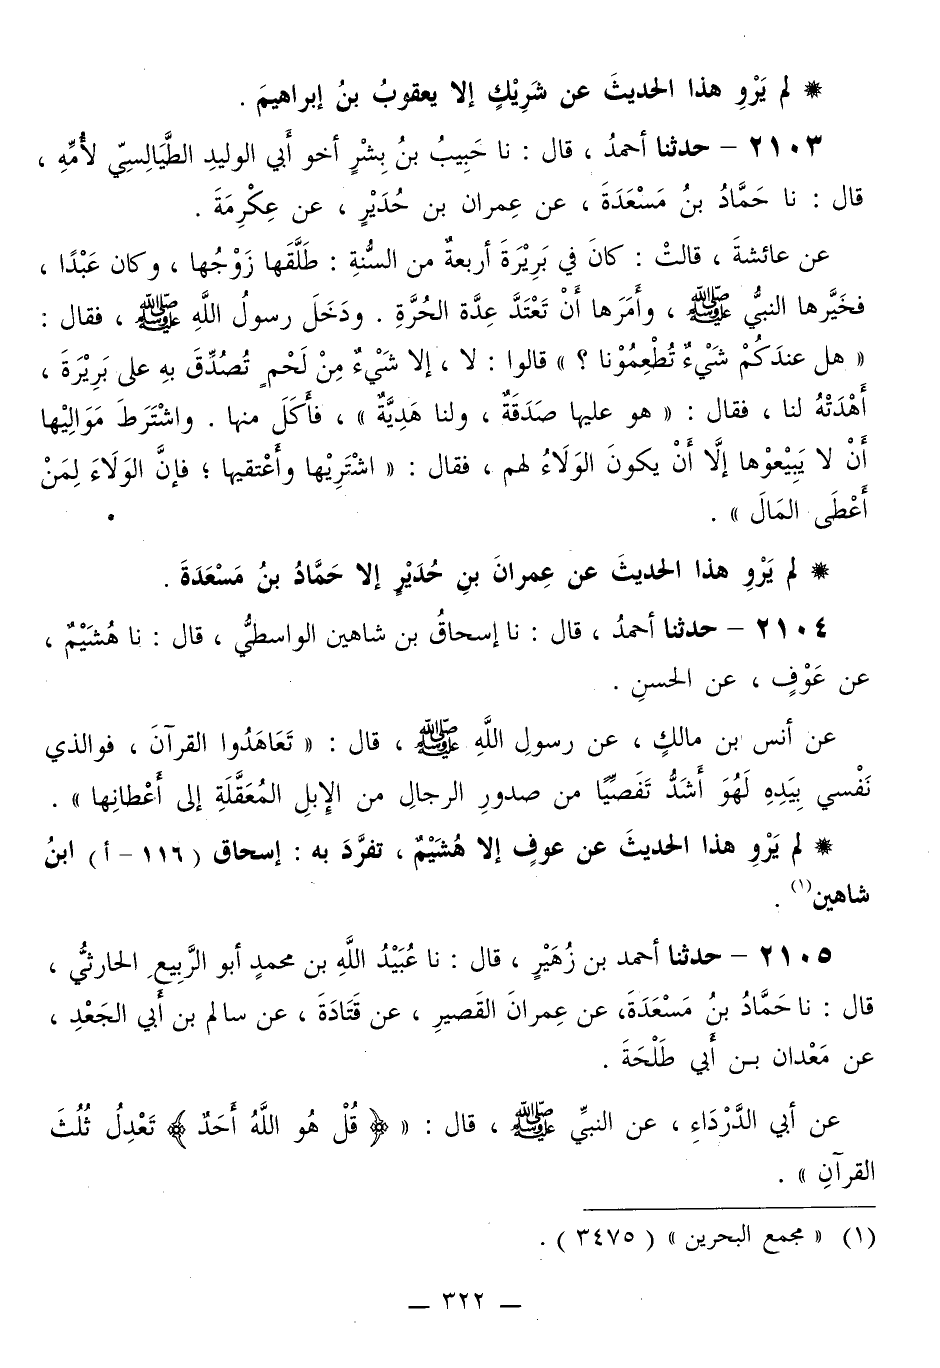 * لم يَرْوِ هذا الحديثَ عن شَرِيْكٍ إلا يعقوبُ بنُ إبراهيمَ .
٢١٠٣ – حدثنا أحمدُ ، قال : نا حَبِيبُ بنُ بِشْرٍ أخو أَبي الوليدِ الطَّيَالِسِيّ لأُمِّهِ ،
قال : نا حَمَّادُ بنُ مَسْعَدَةَ ، عن عِمران بن حُدَيْرٍ ، عن عِكْرِمَةَ .
عن عائشةَ ، قالتْ : كانَ في بَرِيْرَةَ أربعةٌ من السُّنةِ : طَلَّقَها زَوْجُها ، وكان عَبْدًا ،
فخَيَّرها النبيُّ ﷺ ، وأَمَرَها أَنْ تَعْتَدَّ عِدَّة الحُرَّةِ . ودَخَلَ رسولُ اللَّهِ ﷺ ، فقال :
« هل عندَكُمْ شَيْءٌ تُطْعِمُوْنا ؟ » قالوا : لا ، إلا شَيْءٌ مِنْ لَحْمٍ تُصُدِّقَ بهِ على بَرِيْرَةَ ،
أَهْدَتْهُ لنا ، فقال : « هو عليها صَدَقَةٌ ، ولنا هَدِيَّةٌ » ، فأَكَلَ منها . واشْتَرَطَ مَوَالِيْها
أَنْ لا يَبِيْعوْها إلَّا أَنْ يكونَ الوَلَاءُ لهم ، فقال : « اشْتَرِيْها وأَعْتقيها ؛ فإنَّ الوَلَاءَ لِمَنْ
أَعْطَى المَالَ » .
* لم يَرْوِ هذا الحديثَ عن عِمرانَ بنِ حُدَيْرٍ إلا حَمَّادُ بنُ مَسْعَدَةَ .
٢١٠٤ – حدثنا أحمدُ ، قال : نا إسحاقُ بن شاهين الواسطيُّ ، قال : نا هُشَيْمٌ ،
عن عَوْفٍ ، عن الحسنِ .
عن أنس بن مالكٍ ، عن رسولِ اللَّهِ ﷺ ، قال : « تَعَاهَدُوا القرآنَ ، فوالذي
نَفْسي بِيَدِهِ لَهُوَ أَشَدُّ تَفَصِّيًا من صدورِ الرجالِ من الإبلِ المُعَقَّلَةِ إلى أَعْطانِها » .
* لم يَرْوِ هذا الحديثَ عن عوفٍ إلا هُشَيْمٌ ، تفرَّدَ به : إسحاق ( ١١٦ – أ ) ابنُ
شاهين(١) .
٢١٠٥ – حدثنا أحمد بن زُهَيْرٍ ، قال : نا عُبَيْدُ اللَّهِ بن محمدٍ أبو الرَّبِيعِ الحارثيُّ ،
قال : نا حَمَّادُ بنُ مَسْعَدَةَ، عن عِمرانَ القَصيرِ ، عن قَتَادَةَ ، عن سالم بن أَبي الجَعْدِ ،
عن مَعْدان بـن أَبي طَلْحَةَ .
عن أبي الدَّرْدَاءِ ، عن النبيِّ ﷺ ، قال : « ﴿ قُلْ هُو اللَّهُ أَحَدٌ ﴾ تَعْدِلُ ثُلُثَ
القرآنِ » .
(١) « مجمع البحرين » ( ٣٤٧٥ ) .
— ٣٢٢ —